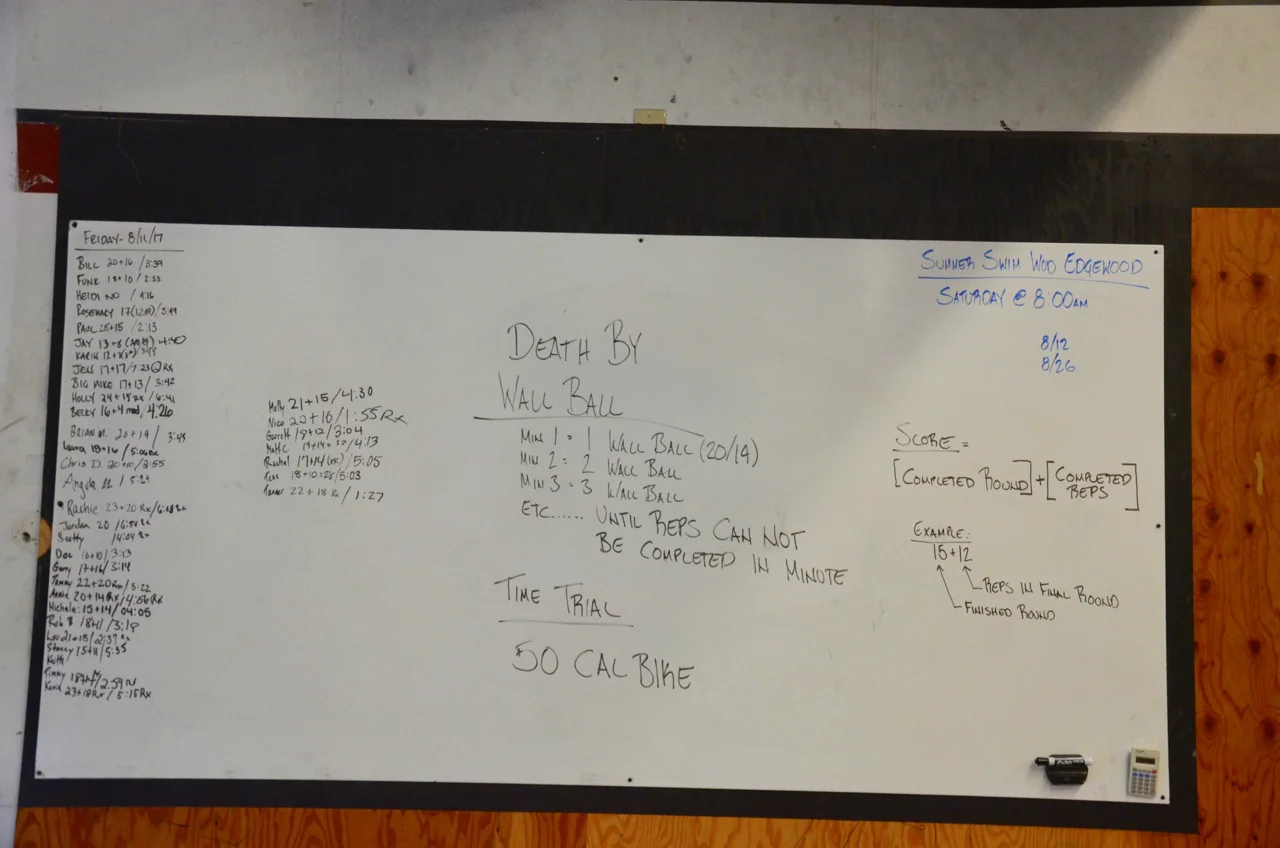 FRIDAY- 8/11/17
BILL 20+16 /3:39
FUNK 18+10 / 2:53
HEIDI NO / 4:16
ROSEMARY 17(12#) / 5:49
PAUL 25+15 / 2:13
JAY 13+6 4:40
KARIN 12+
JEN 17+17/7:23 RX
BIG MIKE 17+13/ 3:42
HOLLY 24+15 RX /6:41
BECKY 16+4 mod, 4:26
BRIAN M. 20+19 / 3:45
Laura 18+16 / 5:06 RX
Chris D. 20+10/2:55
Angela 11 / 5:29
Rachie 23+20 Rx/6:48
Jordan 20 /6:50
Scotty /4:04
Doc 16+10/ 3:13
Gary 17+16/ 3:14
Tammy 22+20 Rx/ 5:22
Annie 20+14 Rx/4:56 Rx
Michele: 15+14/ 04:05
Rob B 18+1 / 3:18
Lou 21+18/2:37
Stacey 15+11/5:35
Keith
Timmy 18+ /2:59
Kevin 23+18 Rx/ 5:15 Rx
Molly 21+15/4:30
Nico 22+16/1:55 Rx
Garrett 19+12/3:04
19+14 /4:13
Rachel 17+14 /5:05
18+10 /5:03
Tanner 22+18 / 1:27
DEATH BY
WALL BALL
MIN 1 = 1 WALL BALL (20/14)
MIN 2 = 2 WALL BALL
MIN 3 = 3 WALL BALL
ETC...... UNTIL REPS CAN NOT
BE COMPLETED IN MINUTE
TIME TRIAL
50 CAL BIKE
SUMMER SWIM WOD EDGEWOOD
SATURDAY @ 8:00AM
8/12
8/26
SCORE =
[COMPLETED ROUND] + [COMPLETED
REPS]
EXAMPLE:
15+12
REPS IN FINAL ROUND
FINISHED ROUND